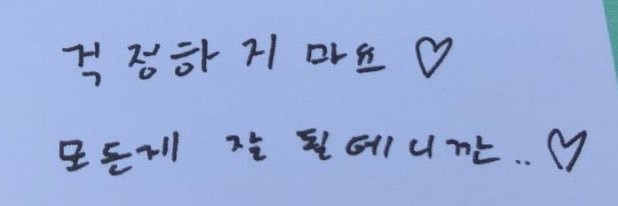 걱정하지 마요♡
모든게 잘 될테니깐..♡